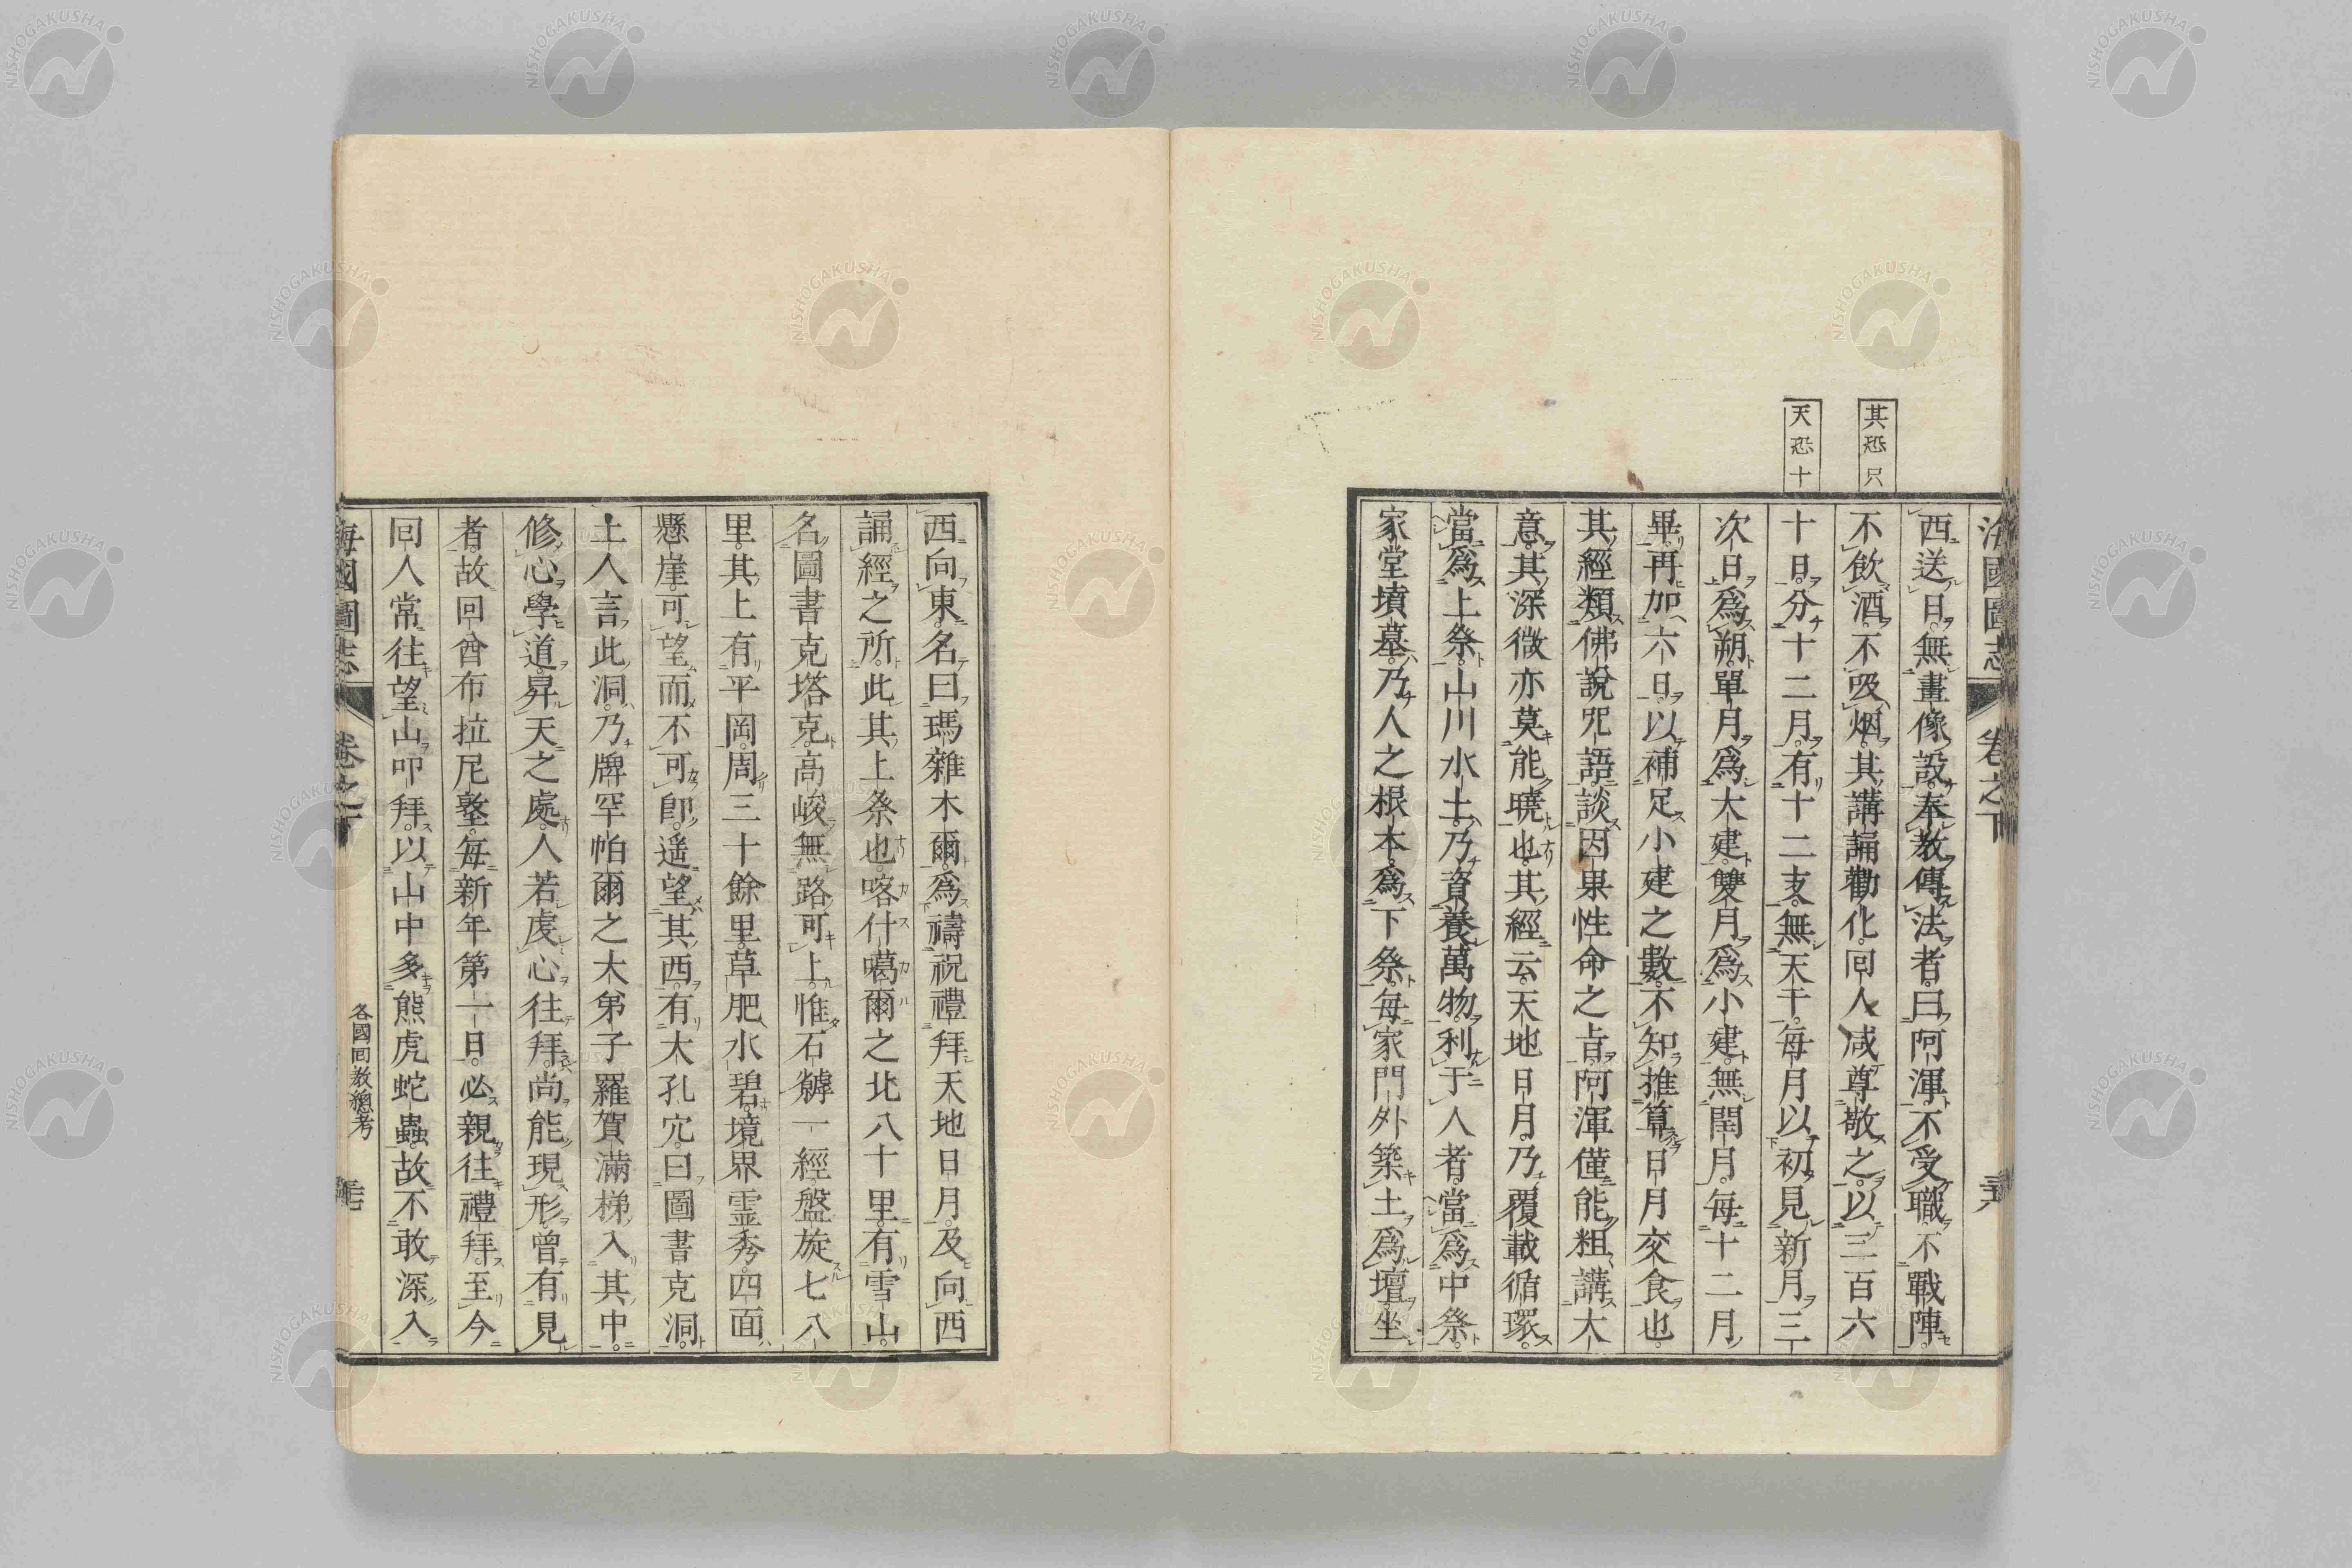 其恐只
天恐十
海國圖志 卷之下
西送日。無畫像設。奉教傳法者。曰阿渾。不受職。不戰陣。
不飲酒。不吸烟。其講誦勸化。回人咸尊敬之。以三百六
十日。分十二月。有十二支。無天干。每月以初見新月三
次日爲朔。單月爲大建。雙月爲小建。無閏月。每十二月
畢。再加六日。以補足小建之數。不知推算日月交食也。
其經類佛說咒語。談因果性命之旨。阿渾僅能粗講大
意。其深微亦莫能曉也。其經云。天地日月。乃覆載循環。
當爲上祭。山川水土。乃資養萬物。利于人者。當爲中祭。
家堂墳墓。乃人之根本。爲下祭。每家門外築土爲壇。坐
西向東。名曰瑪雜木爾。爲禱祝禮拜天地日月。及向西
誦經之所。此其上祭也。喀什噶爾之北八十里。有雪山
名圖書克塔克。高峻無路可上。惟石罅一經。盤旋七八
里。其上有平岡。周三十餘里。草肥水碧。境界靈秀。四面
懸崖。可望而不可卽。遥望其西。有大孔穴。曰圖書克洞。
土人言此洞。乃牌罕帕爾之大弟子羅賀滿梯入其中。
修心學道。昇天之處。人若虔心往拜。尚能現形。曾有見
者。故回酋布拉尼墪。每新年第一日。必親往禮拜。至今
回人常往望山叩拜。以山中多熊虎蛇蟲。故不敢深入
海國圖志 卷之下 各國回教總考
NISHOGAKUSHA